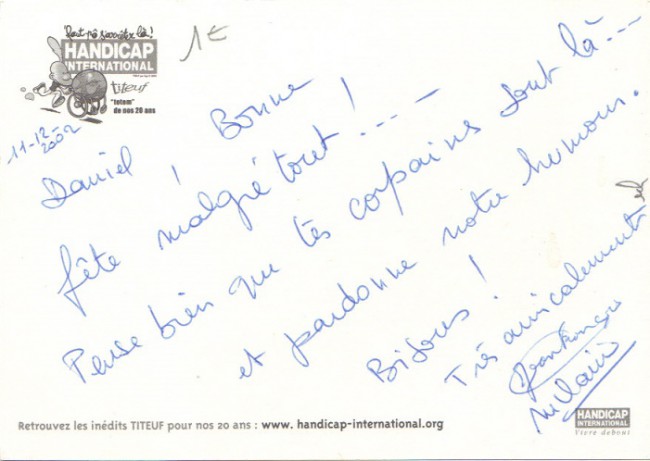 Faut pô s'arrêter là !
HANDICAP
INTERNATIONAL
titeuf
"totem"
de nos 20 ans
1€
11-12-2002
Daniel ! Bonne
fête malgré tout ! ----
Pense bien que tes copains sont là ---
et pardonne notre humour.
Bisous !
Très amicalement
Retrouvez les inédits TITEUF pour nos 20 ans : www. handicap-international.org
HANDICAP
INTERNATIONAL
Vivre debout